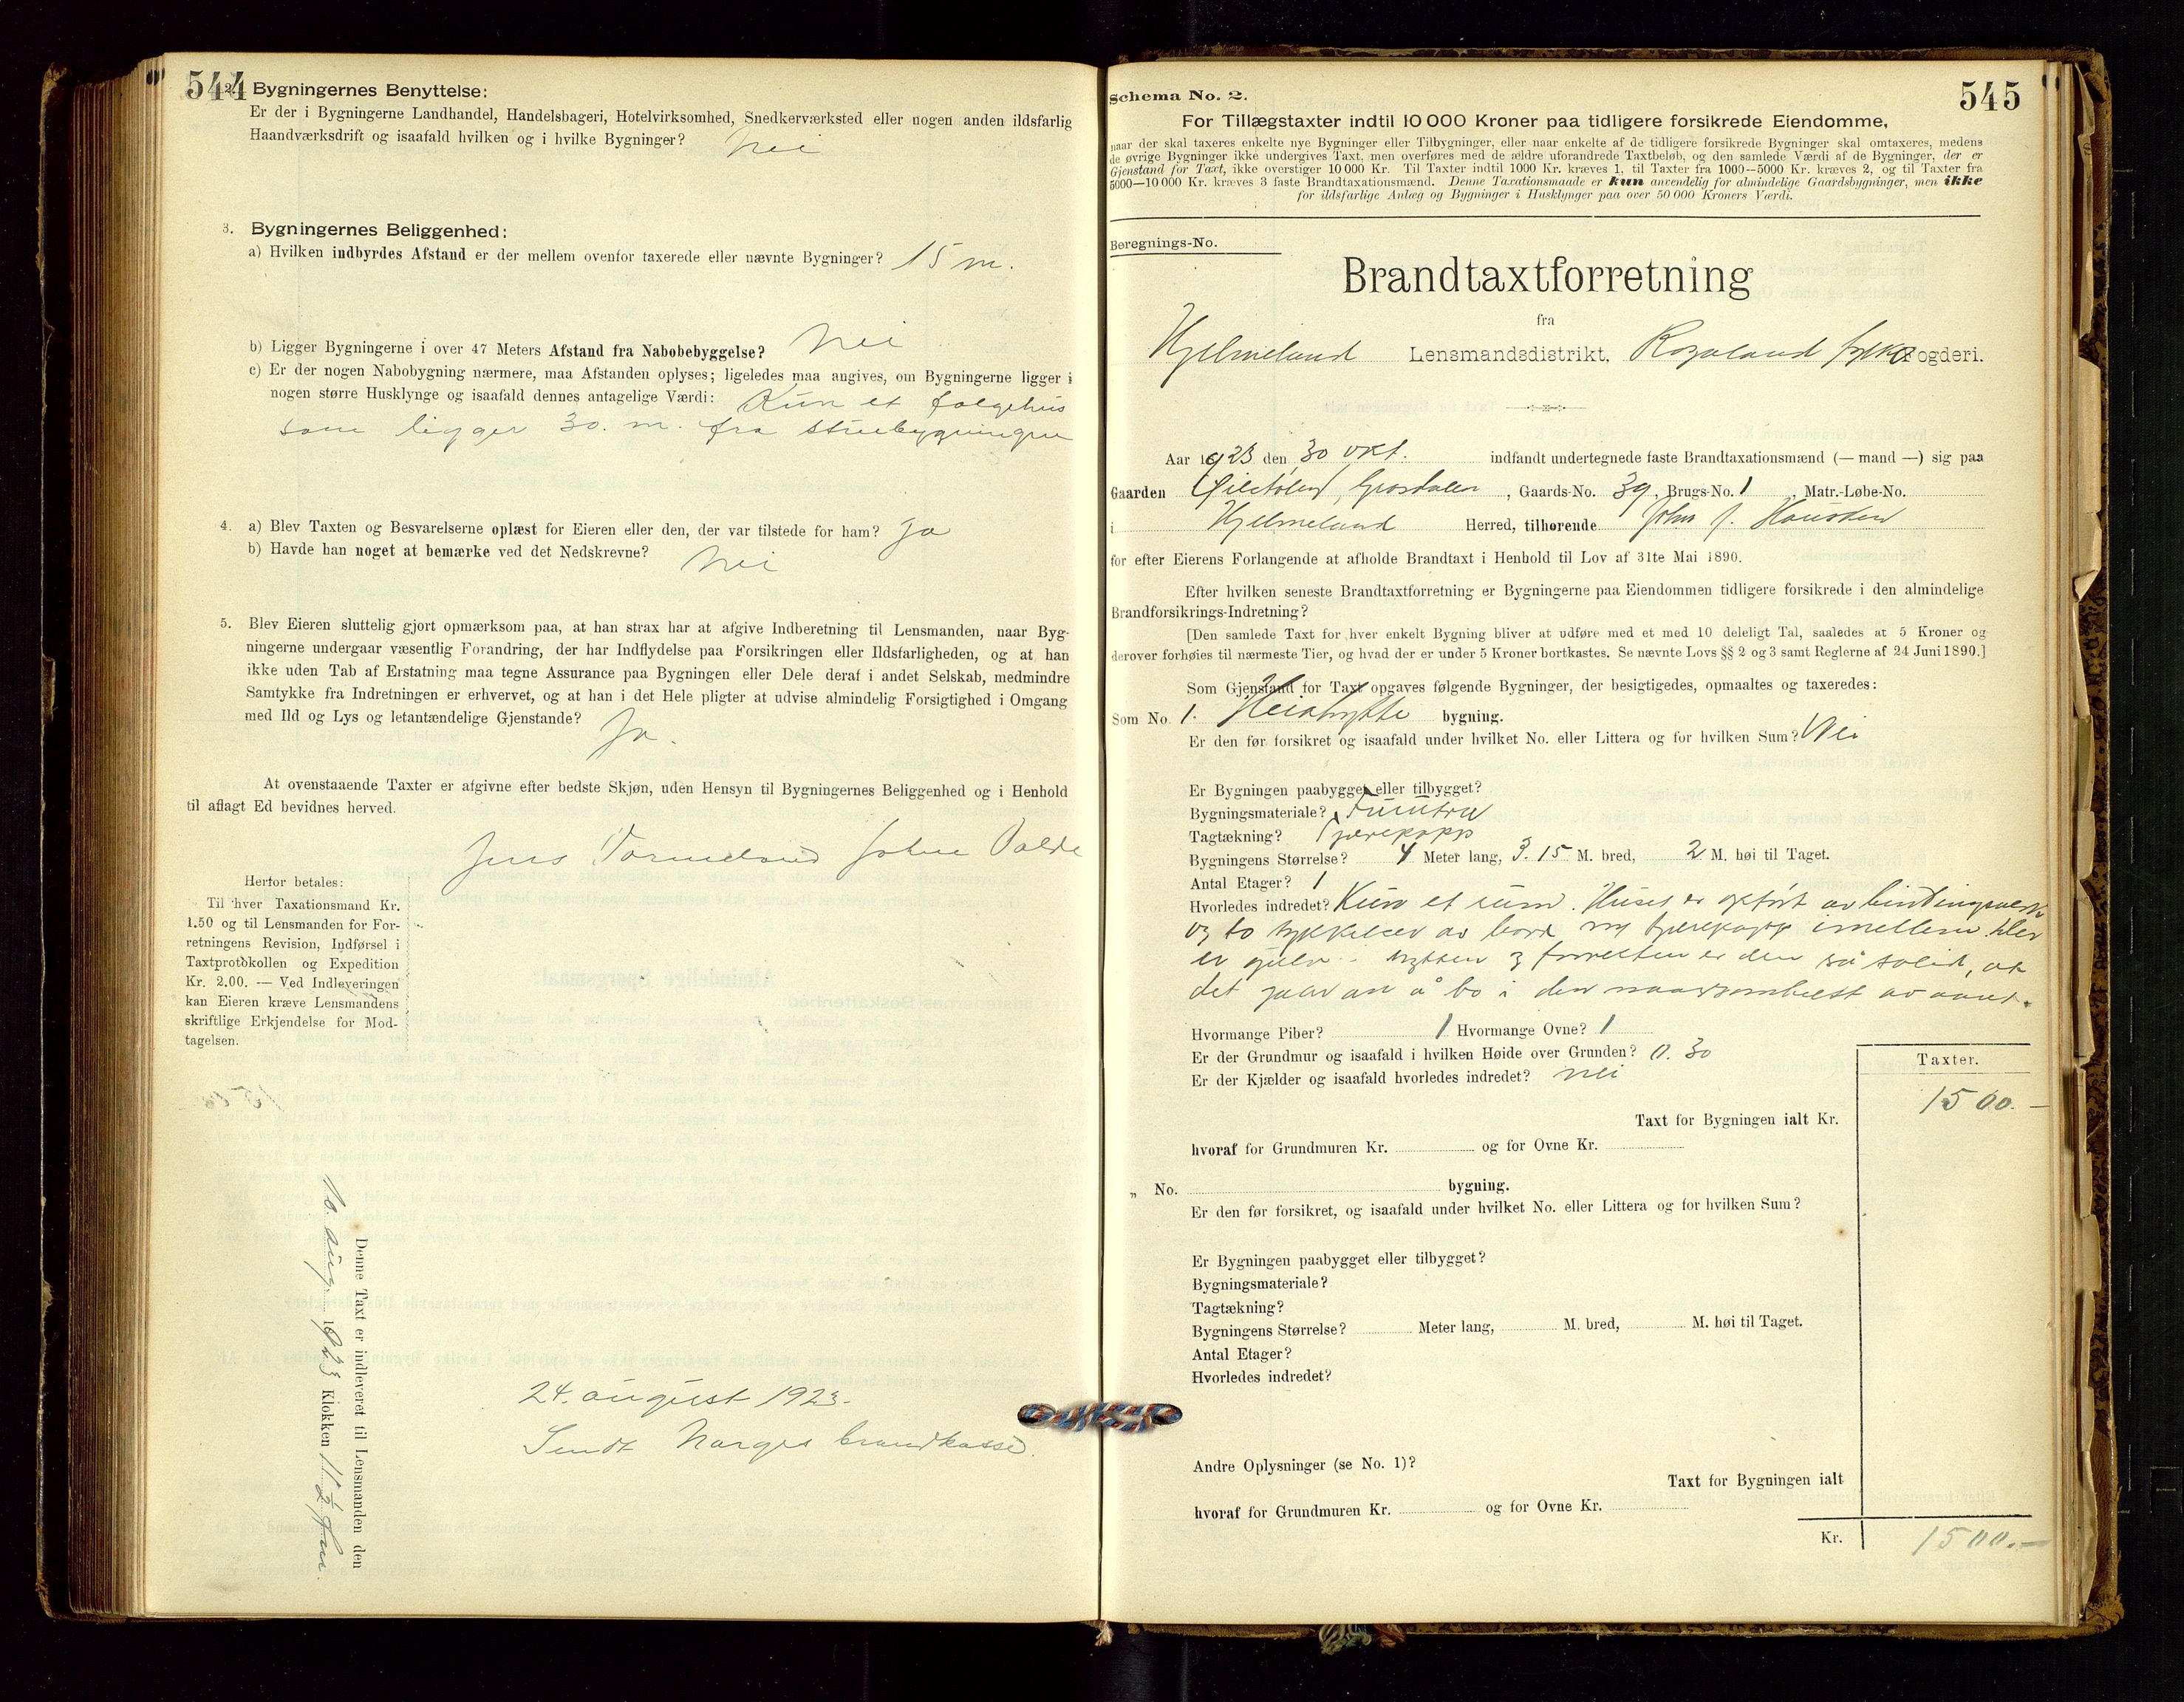 544
2. Bygningernes Benyttelse:
Er der i Bygningerne Landhandel, Handelsbageri, Hotelvirksomhed, Snedkerværksted eller nogen anden ildsfarlig
Haandværksdrift og isaafald hvilken og i hvilke Bygninger? Nei
3. Bygningernes Beliggenhed:
a) Hvilken indbyrdes Afstand er der mellem ovenfor taxerede eller nævnte Bygninger? 15 m.
b) Ligger Bygningerne i over 47 Meters Afstand fra Nabobebyggelse? Nei
c) Er der nogen Nabobygning nærmere, maa Afstanden oplyses; ligeledes maa angives, om Bygningerne ligger i
nogen større Husklynge og isaafald dennes antagelige Værdi: Kun et følgehus
som ligger 30. m. fra stuebygningen
4. a) Blev Taxten og Besvarelserne oplæst for Eieren eller den, der var tilstede for ham? Ja
b) Havde han noget at bemærke ved det Nedskrevne? Nei
5. Blev Eieren sluttelig gjort opmærksom paa, at han strax har at afgive Indberetning til Lensmanden, naar Byg-
ningerne undergaar væsentlig Forandring, der har Indflydelse paa Forsikringen eller Ildsfarligheden, og at han
ikke uden Tab af Erstatning maa tegne Assurance paa Bygningen eller Dele deraf i andet Selskab, medmindre
Samtykke fra Indretningen er erhvervet, og at han i det Hele pligter at udvise almindelig Forsigtighed i Omgang
med Ild og Lys og letantændelige Gjenstande? Ja.
At ovenstaaende Taxter er afgivne efter bedste Skjøn, uden Hensyn til Bygningernes Beliggenhed og i Henhold
til aflagt Ed bevidnes herved.
Jens Tormeland Johne Valde
Herfor betales:
Til hver Taxationsmand Kr.
1.50 og til Lensmanden for For-
retningens Revision, Indførsel i
Taxtprotokollen og Expedition
Kr. 2.00. — Ved Indleveringen
kan Eieren kræve Lensmandens
skriftlige Erkjendelse for Mod-
tagelsen.
Denne Taxt er indleveret til Lensmanden den
10. aug. 1923 Klokken 11 1/2 fm.
24. august 1923.
Sendt Norges brandkasse.
545
Schema No. 2.
For Tillægstaxter indtil 10 000 Kroner paa tidligere forsikrede Eiendomme,
naar der skal taxeres enkelte nye Bygninger eller Tilbygninger, eller naar enkelte af de tidligere forsikrede Bygninger skal omtaxeres, medens
de øvrige Bygninger ikke undergives Taxt, men overføres med de ældre uforandrede Taxtbeløb, og den samlede Værdi af de Bygninger, der er
Gjenstand for Taxt, ikke overstiger 10 000 Kr. Til Taxter indtil 1000 Kr. kræves 1, til Taxter fra 1000—5000 Kr. kræves 2, og til Taxter fra
5000—10 000 Kr. kræves 3 faste Brandtaxationsmænd. Denne Taxationsmaade er kun anvendelig for almindelige Gaardsbygninger, men ikke
for ildsfarlige Anlæg og Bygninger i Husklynger paa over 50 000 Kroners Værdi.
Beregnings-No.
Brandtaxtforretning
fra
Hjelmeland Lensmandsdistrikt, Rogaland fylke Fogderi.
Aar 1923 den 30 okt. indfandt undertegnede faste Brandtaxationsmænd (— mand —) sig paa
Gaarden Grosdalen, Gaards-No. 39, Brugs-No. 1, Matr.-Løbe-No.
i Hjelmeland Herred, tilhørende John J. Hausken
for efter Eierens Forlangende at afholde Brandtaxt i Henhold til Lov af 31te Mai 1890.
Efter hvilken seneste Brandtaxtforretning er Bygningerne paa Eiendommen tidligere forsikrede i den almindelige
Brandforsikrings-Indretning?
[Den samlede Taxt for hver enkelt Bygning bliver at udføre med et med 10 deleligt Tal, saaledes at 5 Kroner og
derover forhøies til nærmeste Tier, og hvad der er under 5 Kroner bortkastes. Se nævnte Lovs §§ 2 og 3 samt Reglerne af 24 Juni 1890.]
Som Gjenstand for Taxt opgaves følgende Bygninger, der besigtigedes, opmaaltes og taxeredes:
Som No. 1. Heiahytte bygning.
Er den før forsikret og isaafald under hvilket No. eller Littera og for hvilken Sum? Nei
Er Bygningen paabygget eller tilbygget?
Bygningsmateriale? Furutre
Tagtækning? Tjærepapp
Bygningens Størrelse? 4 Meter lang, 3.15 M. bred, 2 M. høi til Taget.
Antal Etager? 1
Hvorledes indredet? Kun et rum. Huset er opført av bindingsverk
og to tykkelser av bord my tjærepapp imellem. Der
er gulv i hytten og forresten er den så solid, at
det gaar an å bo i den naarsomhelst av aaret.
Hvormange Piber? 1 Hvormange Ovne? 1
Er der Grundmur og isaafald i hvilken Høide over Grunden? 0.30
Er der Kjælder og isaafald hvorledes indredet? Nei
Taxter.
Taxt for Bygningen ialt Kr. 1500.—
hvoraf for Grundmuren Kr. og for Ovne Kr.
„ No. bygning.
Er den før forsikret, og isaafald under hvilket No. eller Littera og for hvilken Sum?
Er Bygningen paabygget eller tilbygget?
Bygningsmateriale?
Tagtækning?
Bygningens Størrelse? Meter lang, M. bred, M. høi til Taget.
Antal Etager?
Hvorledes indredet?
Andre Oplysninger (se No. 1)?
Taxt for Bygningen ialt
hvoraf for Grundmuren Kr. og for Ovne Kr.
Kr. 1500.—